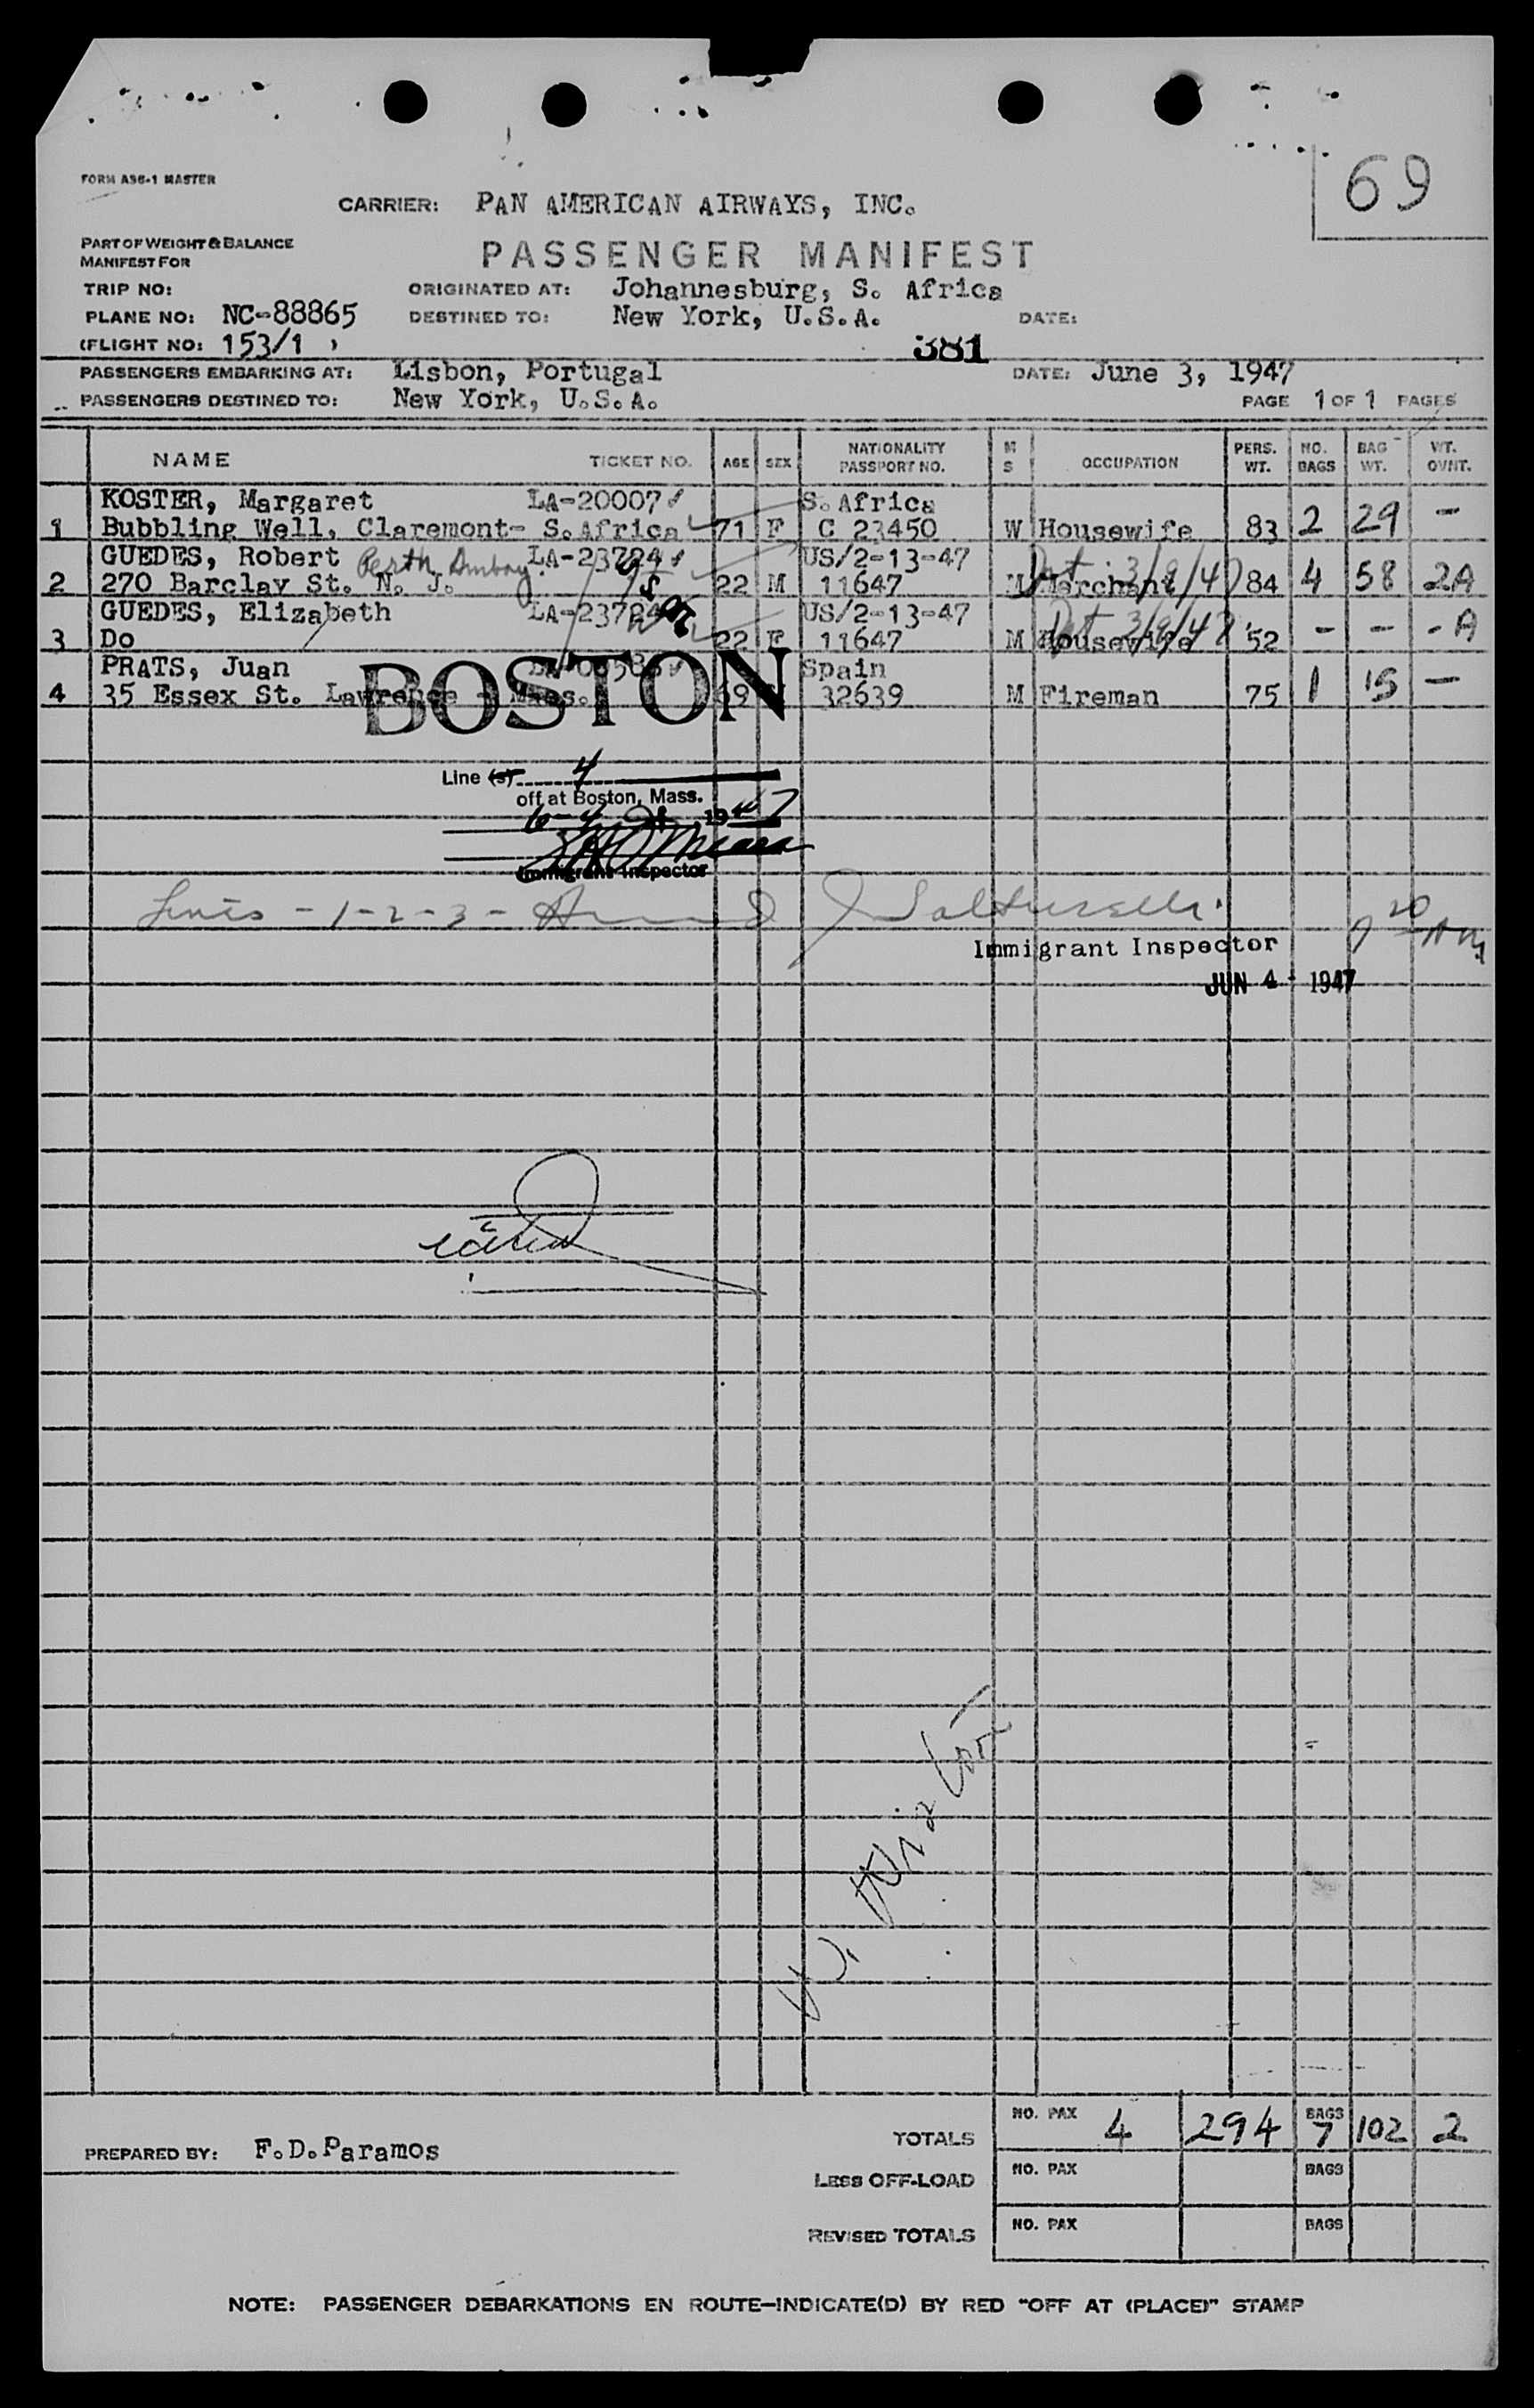 69
FORM A96-1 MASTER
CARRIER: PAN AMERICAN AIRWAYS, INC.
PART OF WEIGHT & BALANCE
MANIFEST FOR
PASSENGER MANIFEST
TRIP NO:
ORIGINATED AT: Johannesburg, S. Africa
PLANE NO: NC-88865
DESTINED TO: New York, U.S.A. DATE:
(FLIGHT NO: 153/1 )
381
PASSENGERS EMBARKING AT: Lisbon, Portugal DATE: June 3, 1947
PASSENGERS DESTINED TO: New York, U.S.A. PAGE 1 OF 1 PAGES
NAME TICKET NO. AGE SEX NATIONALITY PASSPORT NO. M S OCCUPATION PERS. WT. NO. BAGS BAG WT. WT. OVNT.
KOSTER, Margaret LA-20007 S. Africa
1 Bubbling Well, Claremont- S. Africa 71 F C 23450 W Housewife 83 2 29 -
GUEDES, Robert Perth Amboy LA-23724 US/2-13-47
2 270 Barclay St. N. J. 22 M 11647 M Merchant 84 4 58 2A
GUEDES, Elizabeth LA-23724 US/2-13-47
3 Do 22 F 11647 M Housewife 52 - - - A
PRATS, Juan Spain
4 35 Essex St. Lawrence - Mass. 69 32639 M Fireman 75 1 15 -
BOSTON
Line (s) 4
off at Boston, Mass.
6-4 1947
Immigrant Inspector
Lines - 1-2-3 -
Immigrant Inspector
JUN 4 - 1947
TOTALS NO. PAX 4 294 BAGS 7 102 2
PREPARED BY: F.D.Paramos
LESS OFF-LOAD NO. PAX BAGS
REVISED TOTALS NO. PAX BAGS
NOTE: PASSENGER DEBARKATIONS EN ROUTE—INDICATE(D) BY RED "OFF AT (PLACE)" STAMP